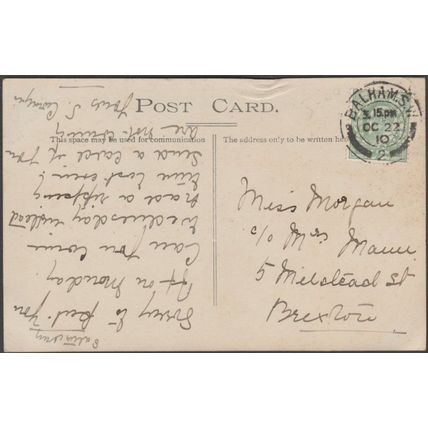 POST CARD.
This space may be used for communication
The address only to be written here
BALHAM. S.W.
3.15 PM
OC 22
10
2
Miss Morgan
c/o Mrs Mann
5 Milstead St
Brixton
Saturday
Sorry to put you
off on Monday
Can you come
Wednesday instead
Had a ripping
time last even!
Send a card if you
are not coming
Yours S.